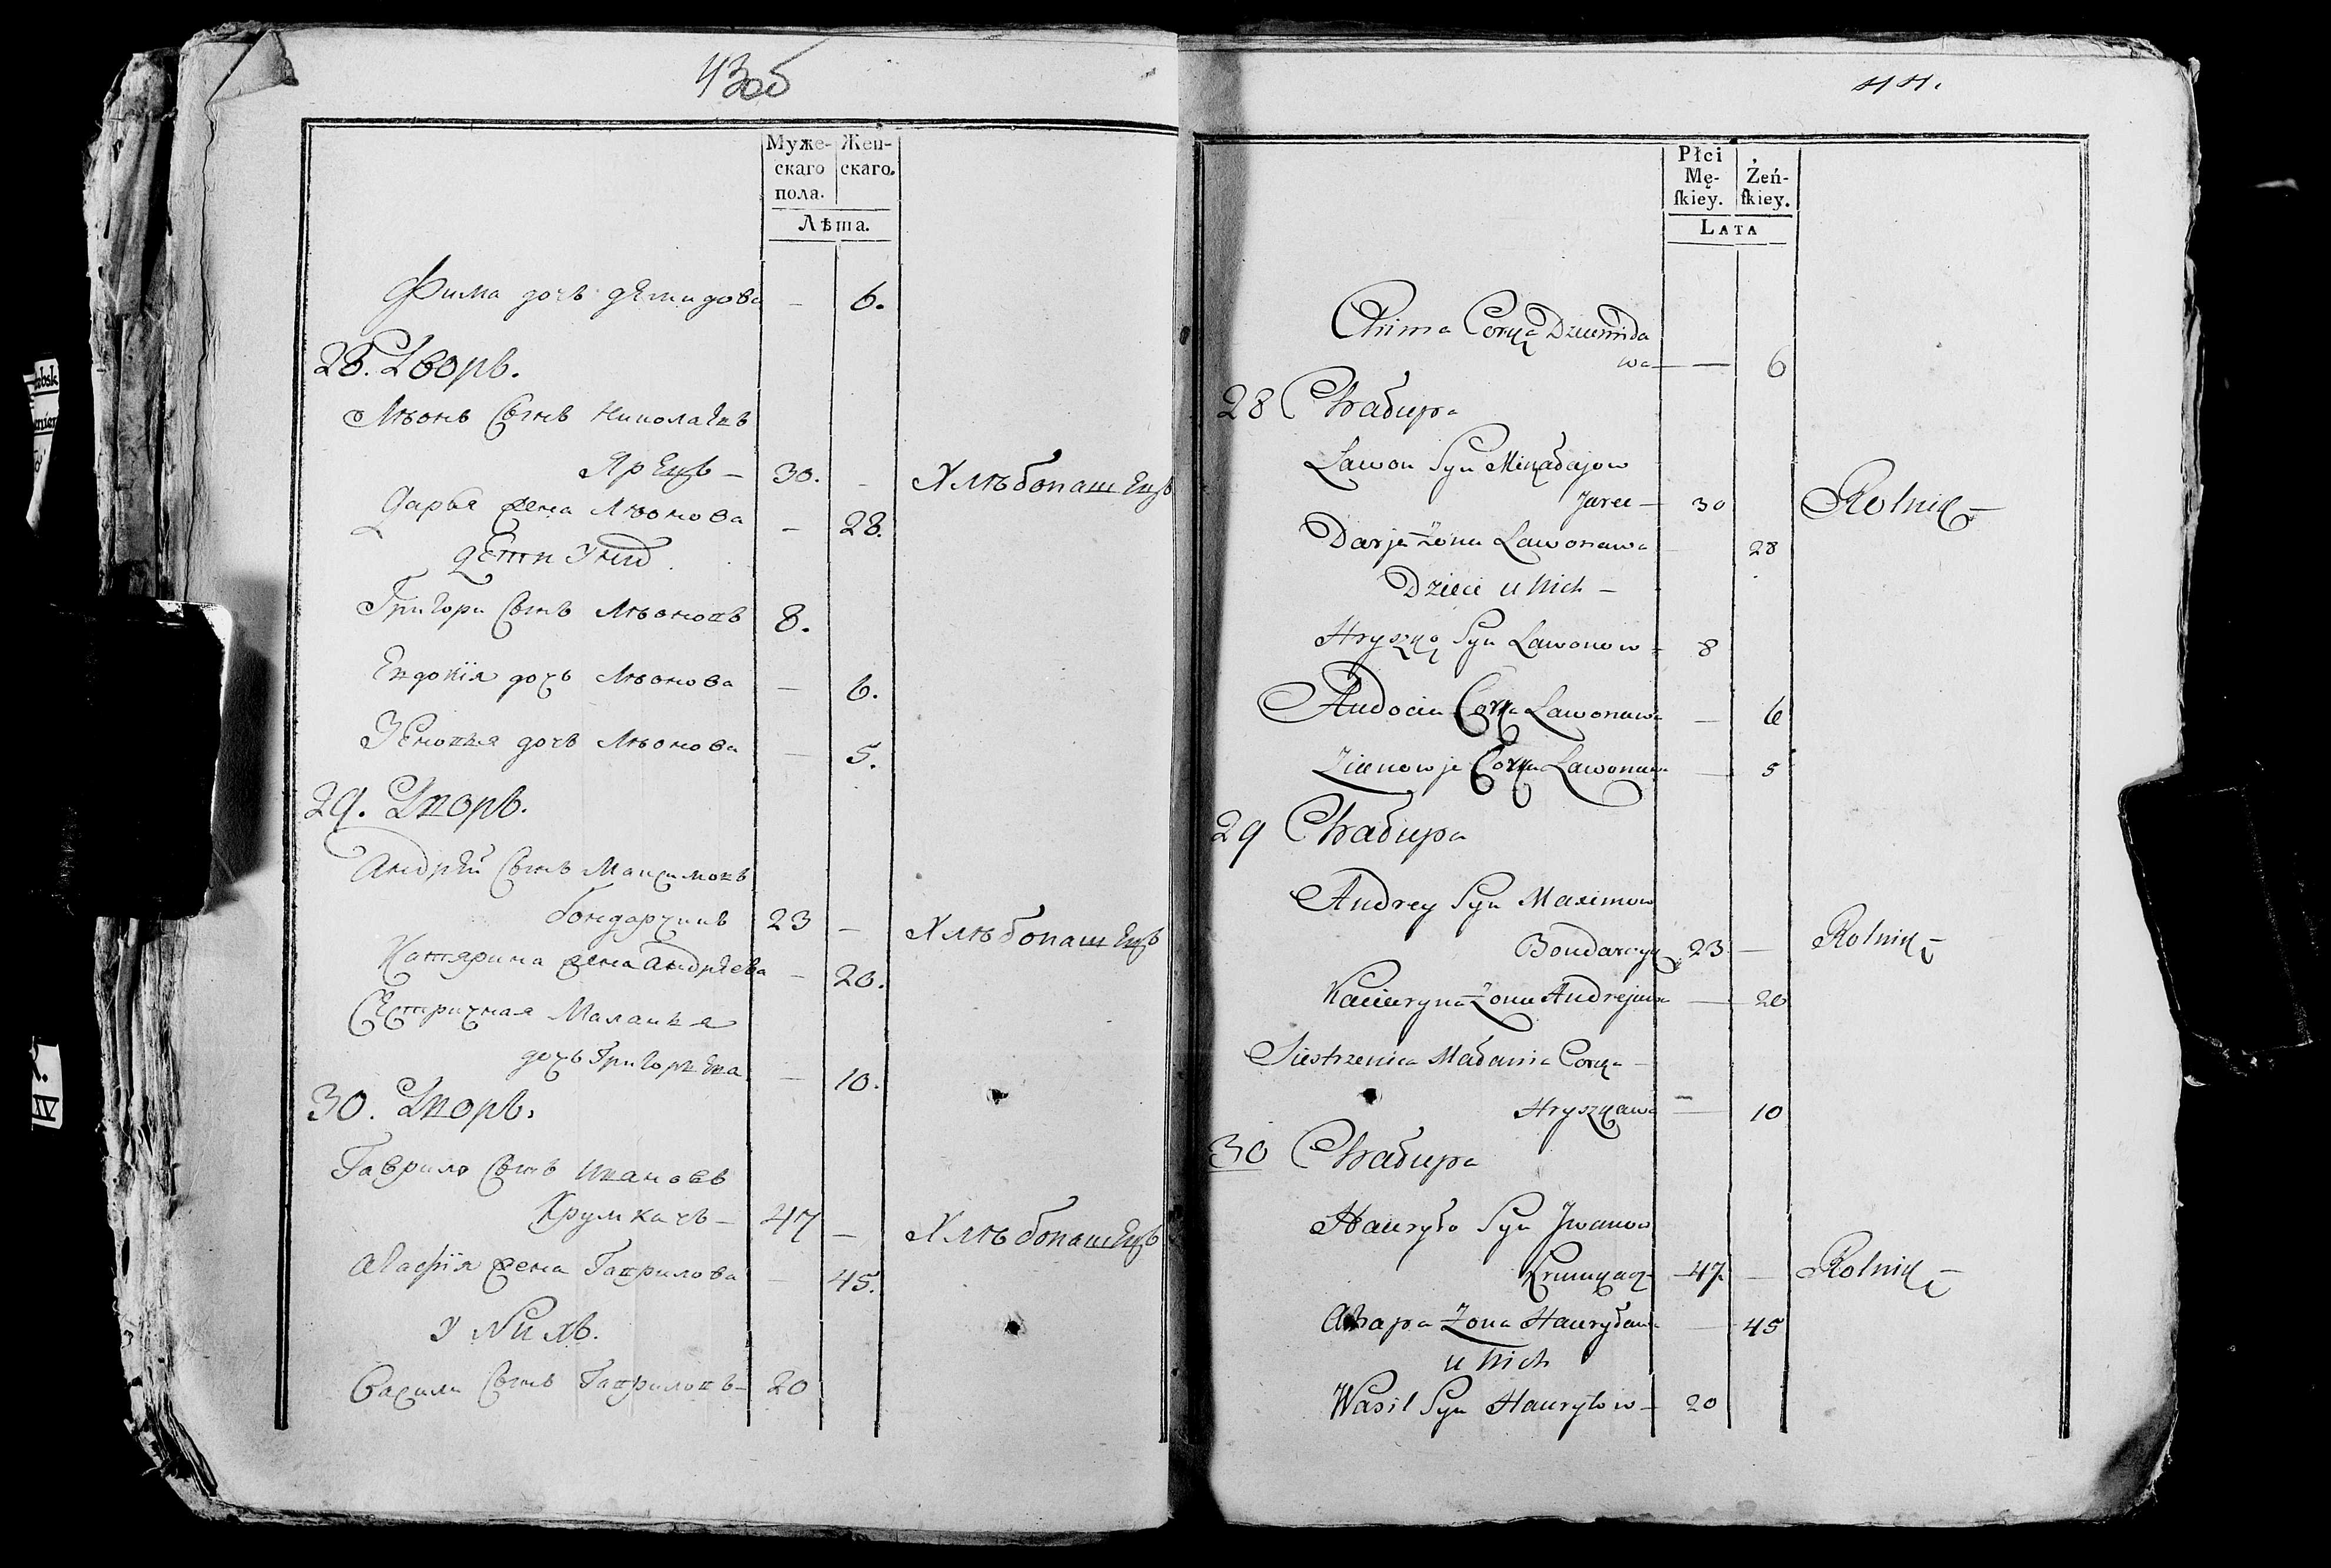 43об
Муже- Жен-
скаго скаго.
пола.
Лѣта.
Фима дочь демидова — 6.
28. Дворъ.
Лѣвонъ Сынъ Николаевъ
Ярецъ — 30. - Хлѣбопашецъ
Дарья жена Лѣвонова — 28.
дети у нихъ
Григори Сынъ Лѣвоновъ 8.
Евдокія дочь Лѣвонова — 6.
Зеновья дочь Лѣвонова — 5.
29. Дворъ.
Андрей Сынъ Максимовъ
бондарчикъ 23 — Хлѣбопашецъ
Катярина жена Андреева — 20.
Сестричная Маланья
дочь Григорьева — 10.
30. Дворъ.
Гаврило Сынъ Ивановъ
Крумкачъ — 47 — Хлѣбопашецъ
Агафія жена Гаврилова — 45.
у Нихъ.
Васили Сынъ Гавриловъ — 20
44.
Płci Żeń-
Mę- skiey.
skiey.
LATA
Chima Corka Dziemida
wa — — 6
28 Chałupa
Lawon Syn Mikałajow
Jarec — 30 Rolnik —
Darja Żona Lawonawa 28
Dzieci u Nich —
Hryszko Syn Lawonow 8
Audocia Corka Lawonawa — 6
Zienowja Corka Lawonawa — 5
29 Chałupa
Andrey Syn Maximow
Bondarczyk 23 — Rolnik —
Kaciaryna Żona Andrejawa — 20
Siestrzenica Małania Corka —
Hryszkawa — 10
30 Chałupa
Hauryło Syn Jwanow
Krumkacz — 47. — Rolnik —
Ahapa Żona Hauryława — 45
u Nich
Wasil Syn Hauryłow — 20